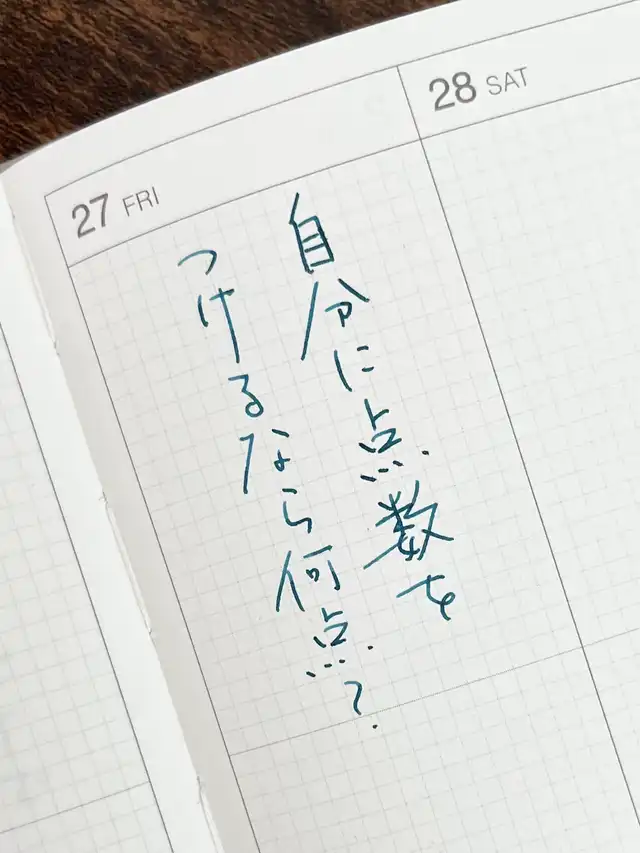 27 FRI
28 SAT
自分に点数を
つけるなら何点?